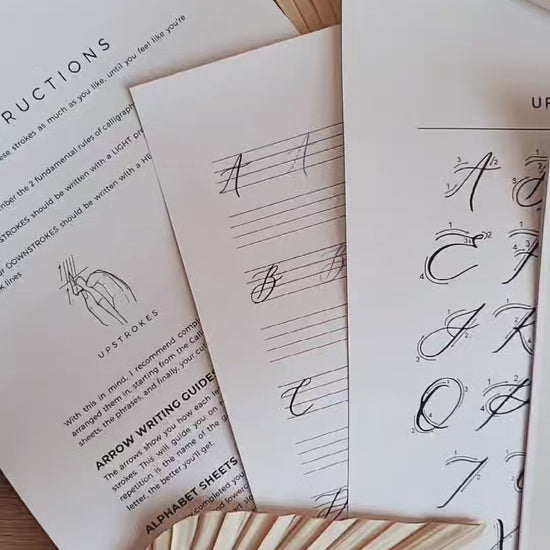 RUCTIONS
ese strokes as much as you like, until you feel like you're
mber the 2 fundamental rules of calligraph
STROKES should be written with a LIGHT pre
ur DOWNSTROKES should be written with a HE
k lines
UPSTROKES
With this in mind, I recommend comp
arranged them in, starting from the Cal
sheets, the phrases, and finally, your cu
ARROW WRITING GUIDES
The arrows show you how each le
strokes. This will guide you on
repetition is the name of the g
letter, the better you'll get.
ALPHABET SHEETS
completed you
and lower
A A
B B
C
B
UP
A
E
I
O